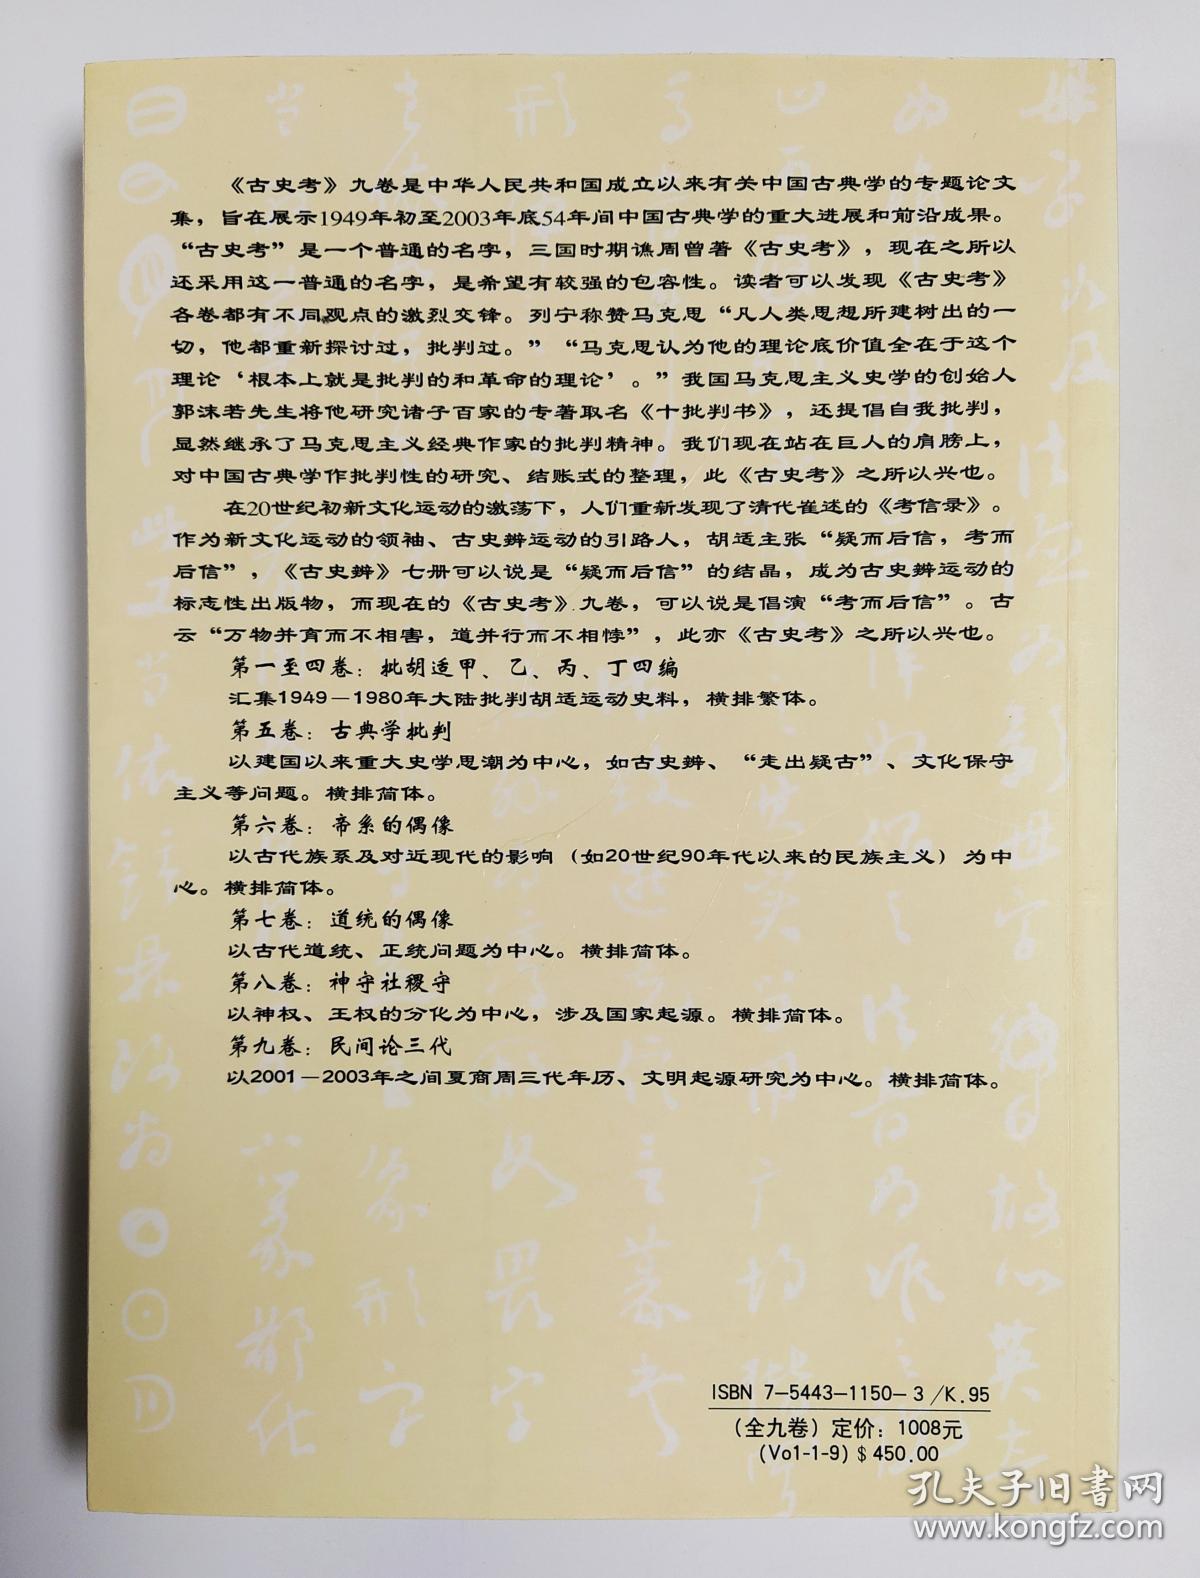 《古史考》九卷是中华人民共和国成立以来有关中国古典学的专题论文
集，旨在展示1949年初至2003年底54年间中国古典学的重大进展和前沿成果。
“古史考”是一个普通的名字，三国时期谯周曾著《古史考》，现在之所以
还采用这一普通的名字，是希望有较强的包容性。读者可以发现《古史考》
各卷都有不同观点的激烈交锋。列宁称赞马克思“凡人类思想所建树出的一
切，他都重新探讨过，批判过。”“马克思认为他的理论底价值全在于这个
理论‘根本上就是批判的和革命的理论’。”我国马克思主义史学的创始人
郭沫若先生将他研究诸子百家的专著取名《十批判书》，还提倡自我批判，
显然继承了马克思主义经典作家的批判精神。我们现在站在巨人的肩膀上，
对中国古典学作批判性的研究、结账式的整理，此《古史考》之所以兴也。
在20世纪初新文化运动的激荡下，人们重新发现了清代崔述的《考信录》。
作为新文化运动的领袖、古史辨运动的引路人，胡适主张“疑而后信，考而
后信”，《古史辨》七册可以说是“疑而后信”的结晶，成为古史辨运动的
标志性出版物，而现在的《古史考》九卷，可以说是倡演“考而后信”。古
云“万物并育而不相害，道并行而不相悖”，此亦《古史考》之所以兴也。
第一至四卷：批胡适甲、乙、丙、丁四编
汇集1949－1980年大陆批判胡适运动史料，横排繁体。
第五卷：古典学批判
以建国以来重大史学思潮为中心，如古史辨、“走出疑古”、文化保守
主义等问题。横排简体。
第六卷：帝系的偶像
以古代族系及对近现代的影响（如20世纪90年代以来的民族主义）为中
心。横排简体。
第七卷：道统的偶像
以古代道统、正统问题为中心。横排简体。
第八卷：神守社稷守
以神权、王权的分化为中心，涉及国家起源。横排简体。
第九卷：民间论三代
以2001－2003年之间夏商周三代年历、文明起源研究为中心。横排简体。
ISBN 7-5443-1150-3/K.95
（全九卷）定价：1008元
(Vo1-1-9)＄450.00
孔夫子旧书网
www.kongfz.com